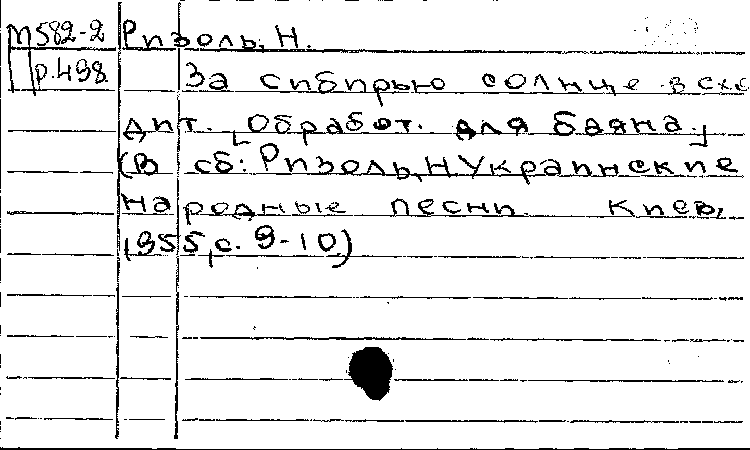 М582-2 Ризоль, Н.
р.498 За сибирью солнце всхо
дит. [Обработ. для баяна]
(В сб: Ризоль, Н. Украинские
народные песни. Киев,
1955, с. 9-10)